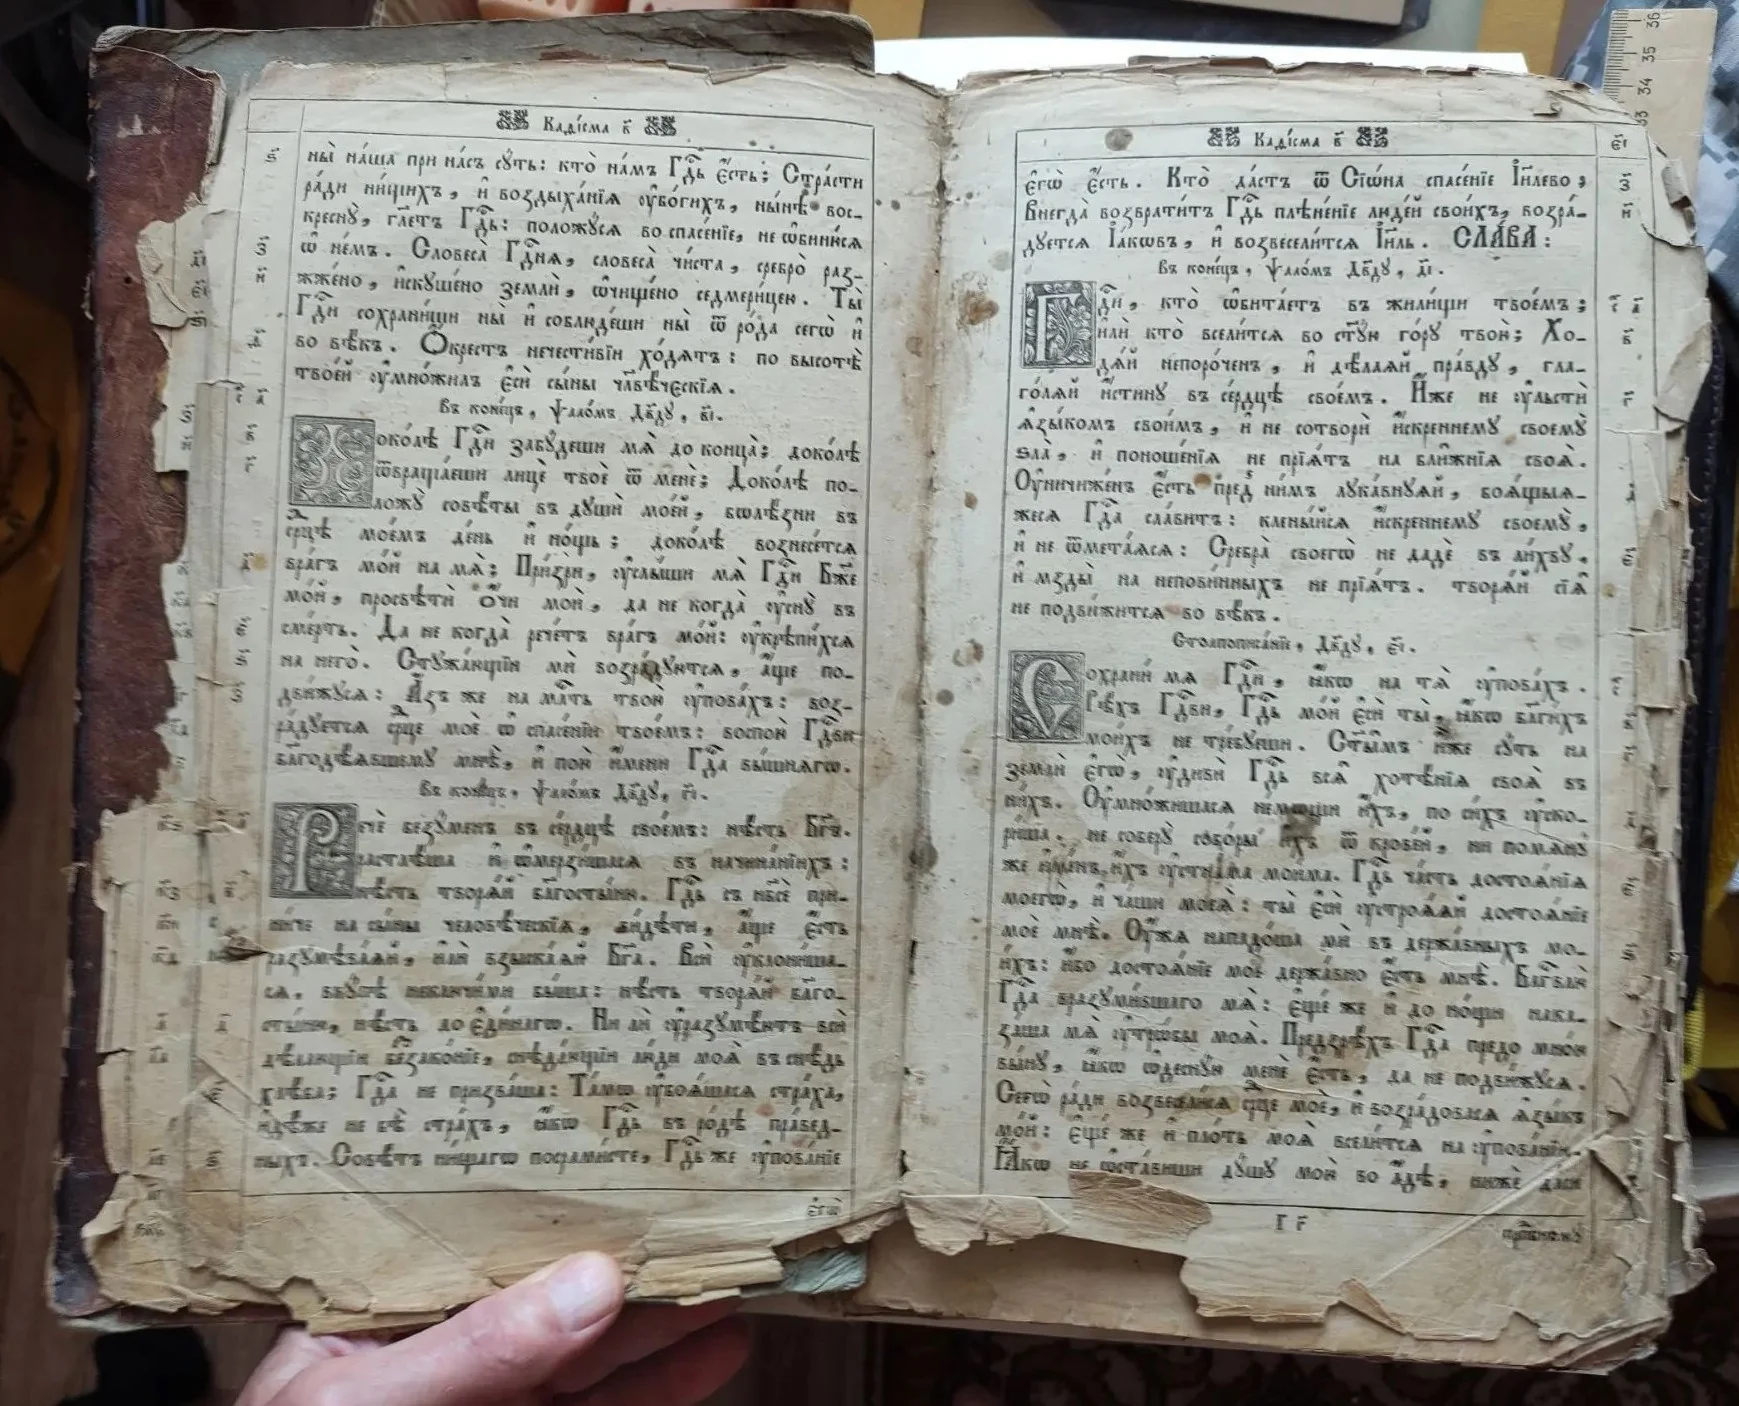 Каѳі́сма в҃
ны̀ на́ша при на́съ сꙋ́ть: кто̀ на́мъ Гдⷭ҇ь є҆́сть; Стра́сти
ра́ди ни́щихъ, и҆ воздыха́нїѧ ᲂу҆бо́гихъ, ны́нѣ вос-
креснꙋ̀, гл҃етъ Гдⷭ҇ь: положꙋ́сѧ во спасе́нїе, не ѡ҆бинꙋ́сѧ
ѡ҆ не́мъ. Словеса̀ Гдⷭ҇нѧ, словеса̀ чи́ста, сребро̀ раз-
жже́но, и҆скꙋше́но землѝ, ѡ҆чище́но седмери́цею. Ты̀
Гдⷭ҇и сохрани́ши ны̀ и҆ соблюде́ши ны̀ ѿ ро́да сегѡ̀ и҆
во вѣ́къ. Ѻ҆́крестъ нечести́вїи хо́дѧтъ: по высотѣ̀
твое́й ᲂу҆мно́жилъ є҆сѝ сы́ны чл҃вѣ́ческїѧ.
Въ коне́цъ, ѱало́мъ Дв҃дꙋ, в҃і.
Доко́лѣ Гдⷭ҇и забꙋ́деши мѧ̀ до конца̀; доко́лѣ
ѿвраща́еши лицѐ твоѐ ѿ менѐ; Доко́лѣ по-
ложꙋ̀ совѣ́ты въ дꙋшѝ мое́й, бѡлѣ́зни въ
срⷣцѣ мое́мъ де́нь и҆ но́щь; доко́лѣ вознесе́тсѧ
вра́гъ мо́й на мѧ̀; При́зри, ᲂу҆слы́ши мѧ̀ Гдⷭ҇и Бж҃е
мо́й, просвѣтѝ ѻ҆́чи моѝ, да не когда̀ ᲂу҆снꙋ̀ въ
сме́рть. Да не когда̀ рече́тъ вра́гъ мо́й: ᲂу҆крѣпи́хсѧ
на него̀. Стꙋжа́ющїи мѝ возра́дꙋютсѧ, а҆́ще по-
дви́жꙋсѧ: А҆́зъ же на млⷭ҇ть твою̀ ᲂу҆пова́хъ: воз-
ра́дꙋетсѧ срⷣце моѐ ѡ҆ спасе́нїи твое́мъ: воспою̀ Гдⷭ҇ви
благодѣ́ѧвшемꙋ мнѣ̀, и҆ пою̀ и҆́мени Гдⷭ҇а вы́шнѧгѡ.
Въ коне́цъ, ѱало́мъ Дв҃дꙋ, г҃і.
Речѐ безꙋ́менъ въ се́рдцѣ свое́мъ: нѣ́сть Бг҃а.
растлѣ́ша и҆ ѡ҆мерзи́шасѧ въ начина́нїихъ:
нѣ́сть творѧ́й бл҃госты́ню. Гдⷭ҇ь съ нб҃сѐ при-
ни́че на сы́ны человѣ́ческїѧ, ви́дѣти, а҆́ще є҆́сть
разꙋмѣва́ѧй, и҆лѝ взыска́ѧй Бг҃а. Всѝ ᲂу҆клони́ша-
сѧ, вкꙋ́пѣ неключи́ми бы́ша: нѣ́сть творѧ́й бл҃го-
сты́ню, нѣ́сть до є҆ди́нагѡ. Ни лѝ ᲂу҆разꙋмѣ́ютъ всѝ
дѣ́лающїи беззако́нїе, снѣда́ющїи лю́ди моѧ̀ въ снѣ́дь
хлѣ́ба; Гдⷭ҇а не призва́ша: Та́мѡ ᲂу҆боѧ́шасѧ стра́ха,
и҆дѣ́же не бѣ̀ стра́хъ, ꙗ҆́кѡ Гдⷭ҇ь въ ро́дѣ пра́вед-
ныхъ. Совѣ́тъ ни́щагѡ посрами́сте, Гдⷭ҇ь же ᲂу҆пова́нїе
є҆гѡ̀
Каѳі́сма в҃
є҆гѡ̀ є҆́сть. Кто̀ да́стъ ѿ Сїѡ́на спасе́нїе І҆и҃лево;
Внегда̀ возврати́тъ Гдⷭ҇ь плѣне́нїе люде́й свои́хъ, возра́-
дꙋетсѧ І҆а́кѡвъ, и҆ возвесели́тсѧ І҆и҃ль. СЛА́ВА:
Въ коне́цъ, ѱало́мъ Дв҃дꙋ, д҃і.
Гдⷭ҇и, кто̀ ѡ҆бита́етъ въ жили́щи твое́мъ;
и҆лѝ кто̀ всели́тсѧ во ст҃ꙋю го́рꙋ твою̀; Хо-
дѧ́й непоро́ченъ, и҆ дѣ́лаѧй пра́вдꙋ, гла-
го́лѧй и҆́стинꙋ въ се́рдцѣ свое́мъ. И҆́же не ᲂу҆льстѝ
ѧ҆зы́комъ свои́мъ, и҆ не сотворѝ и҆́скреннемꙋ своемꙋ̀
ѕла̀, и҆ поноше́нїѧ не прїѧ́тъ на бли́жнїѧ своѧ̀.
Оу҆ничиже́нъ є҆́сть пред̾ ни́мъ лꙋка́внꙋѧй, боѧ́щыѧ-
жесѧ Гдⷭ҇а сла́витъ: клены́йсѧ и҆́скреннемꙋ своемꙋ̀,
и҆ не ѿмета́ѧсѧ: Сребра̀ своегѡ̀ не дадѐ въ ли́хвꙋ,
и҆ мзды̀ на непови́нныхъ не прїѧ́тъ. творѧ́й сїѧ̑
не подви́житсѧ во вѣ́къ.
Столпописа́нїе, Дв҃дꙋ, є҃і.
Сохрани́ мѧ Гдⷭ҇и, ꙗ҆́кѡ на тѧ̀ ᲂу҆пова́хъ.
Рѣ́хъ Гдⷭ҇ви, Гдⷭ҇ь мо́й є҆сѝ ты̀, ꙗ҆́кѡ бл҃ги́хъ
мои́хъ не тре́бꙋеши. Ст҃ы̑мъ и҆̀же сꙋ́ть на
землѝ є҆гѡ̀, ᲂу҆дивѝ Гдⷭ҇ь всѧ̑ хотѣ́нїѧ своѧ̀ въ
ни́хъ. Оу҆мно́жишасѧ не́мѡщи и҆́хъ, по си́хъ ᲂу҆ско-
ри́ша. не соберꙋ̀ собо́ры и҆́хъ ѿ крове́й, ни помѧнꙋ̀
же и҆ме́нъ и҆́хъ ᲂу҆стна́ма мои́ма. Гдⷭ҇ь ча́сть достоѧ́нїѧ
моегѡ̀, и҆ ча́ши моеѧ̀: ты̀ є҆сѝ ᲂу҆строѧ́ѧй достоѧ́нїе
моѐ мнѣ̀. Оу҆́жѧ нападо́ша мѝ въ держа́вныхъ мо-
и́хъ: и҆́бо достоѧ́нїе моѐ держа́вно є҆́сть мнѣ̀. Блⷭ҇влю̀
Гдⷭ҇а вразꙋми́вшаго мѧ̀: є҆ще́ же и҆ до но́щи нака-
за́ша мѧ̀ ᲂу҆трѡ́бы моѧ̀. Предзрѣ́хъ Гдⷭ҇а предо мно́ю
вы́нꙋ, ꙗ҆́кѡ ѡ҆деснꙋ́ю менѐ є҆́сть, да не подви́жꙋсѧ.
Сегѡ̀ ра́ди возвесели́сѧ срⷣце моѐ, и҆ возра́довасѧ ѧ҆зы́къ
мо́й: є҆ще́ же и҆ пло́ть моѧ̀ всели́тсѧ на ᲂу҆пова́нїи.
Ꙗ҆́кѡ не ѡ҆ста́виши дꙋ́шꙋ мою̀ во а҆́дѣ, ниже́ даси
Г г҃